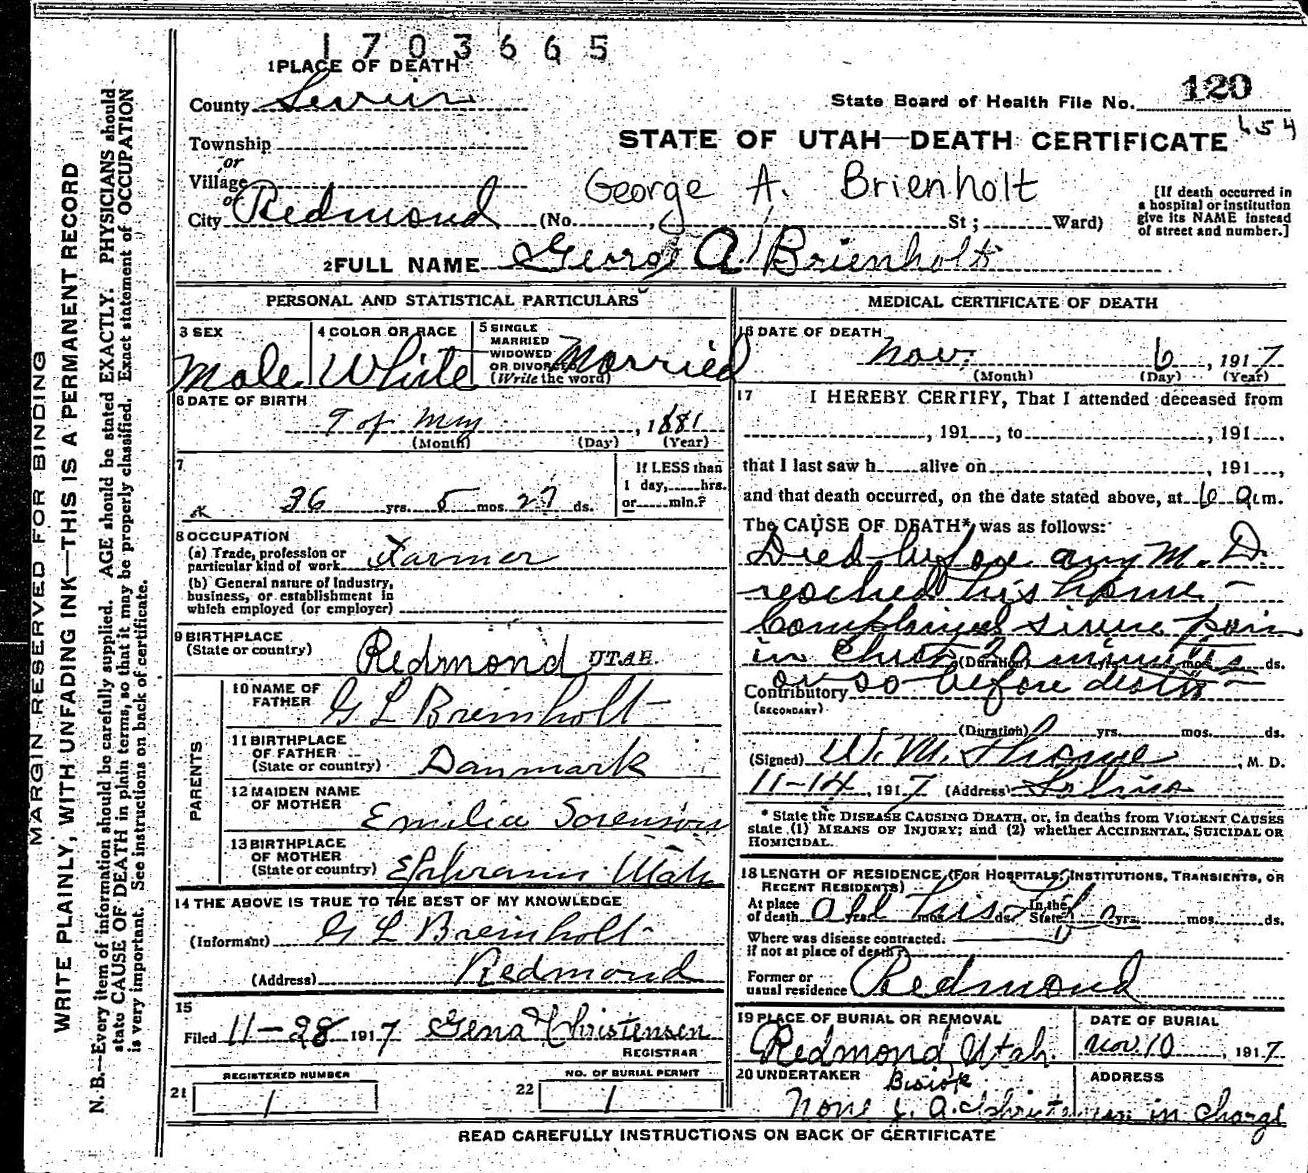 1703665
1 PLACE OF DEATH
County Sevier
State Board of Health File No. 120
654
Township
STATE OF UTAH—DEATH CERTIFICATE
or
Village
George A. Brienholt
[If death occurred in a hospital or institution give its NAME instead of street and number.]
or
City Redmond (No. St; Ward)
2 FULL NAME George A Brienholt
PERSONAL AND STATISTICAL PARTICULARS
3 SEX Male
4 COLOR OR RACE White
5 SINGLE MARRIED WIDOWED OR DIVORCED (Write the word) Married
6 DATE OF BIRTH
9 of May, 1881
(Month) (Day) (Year)
7
36 yrs. 5 mos. 27 ds.
If LESS than 1 day, hrs. or min.?
8 OCCUPATION
(a) Trade, profession or particular kind of work Farmer
(b) General nature of industry, business, or establishment in which employed (or employer)
9 BIRTHPLACE
(State or country) Redmond UTAH.
PARENTS
10 NAME OF FATHER G L Breinholt
11 BIRTHPLACE OF FATHER (State or country) Danmark
12 MAIDEN NAME OF MOTHER Emilia Sorenson
13 BIRTHPLACE OF MOTHER (State or country) Ephraim Utah
14 THE ABOVE IS TRUE TO THE BEST OF MY KNOWLEDGE
(Informant) G L Breinholt
(Address) Redmond
15
Filed 11-28 1917 Gena Christensen
REGISTRAR
21 REGISTERED NUMBER 1
22 NO. OF BURIAL PERMIT 1
MEDICAL CERTIFICATE OF DEATH
16 DATE OF DEATH
Nov. 6, 1917
(Month) (Day) (Year)
17 I HEREBY CERTIFY, That I attended deceased from
, 191 , to , 191 ,
that I last saw h alive on , 191 ,
and that death occurred, on the date stated above, at 6 a.m.
The CAUSE OF DEATH* was as follows:
Died before any M. D.
reached his home -
Complained sivere pain
in Chest 20 minutes
(Duration) yrs. mos. ds.
or so before death -
Contributory
(SECONDARY)
(Duration) yrs. mos. ds.
(Signed) W. M. , M. D.
11-14, 1917 (Address) Salina
* State the DISEASE CAUSING DEATH, or, in deaths from VIOLENT CAUSES
state (1) MEANS OF INJURY; and (2) whether ACCIDENTAL, SUICIDAL OR
HOMICIDAL.
18 LENGTH OF RESIDENCE (FOR HOSPITALS, INSTITUTIONS, TRANSIENTS, OR
RECENT RESIDENTS)
At place of death all his life yrs. mos. ds. In the State yrs. mos. ds.
Where was disease contracted, if not at place of death?
Former or usual residence Redmond
19 PLACE OF BURIAL OR REMOVAL
Redmond Utah.
DATE OF BURIAL
Nov. 10, 1917
20 UNDERTAKER
ADDRESS
None in charge
READ CAREFULLY INSTRUCTIONS ON BACK OF CERTIFICATE
MARGIN RESERVED FOR BINDING
WRITE PLAINLY, WITH UNFADING INK—THIS IS A PERMANENT RECORD
N. B.—Every item of information should be carefully supplied. AGE should be stated EXACTLY. PHYSICIANS should
state CAUSE OF DEATH in plain terms, so that it may be properly classified. Exact statement of OCCUPATION
is very important. See instructions on back of certificate.